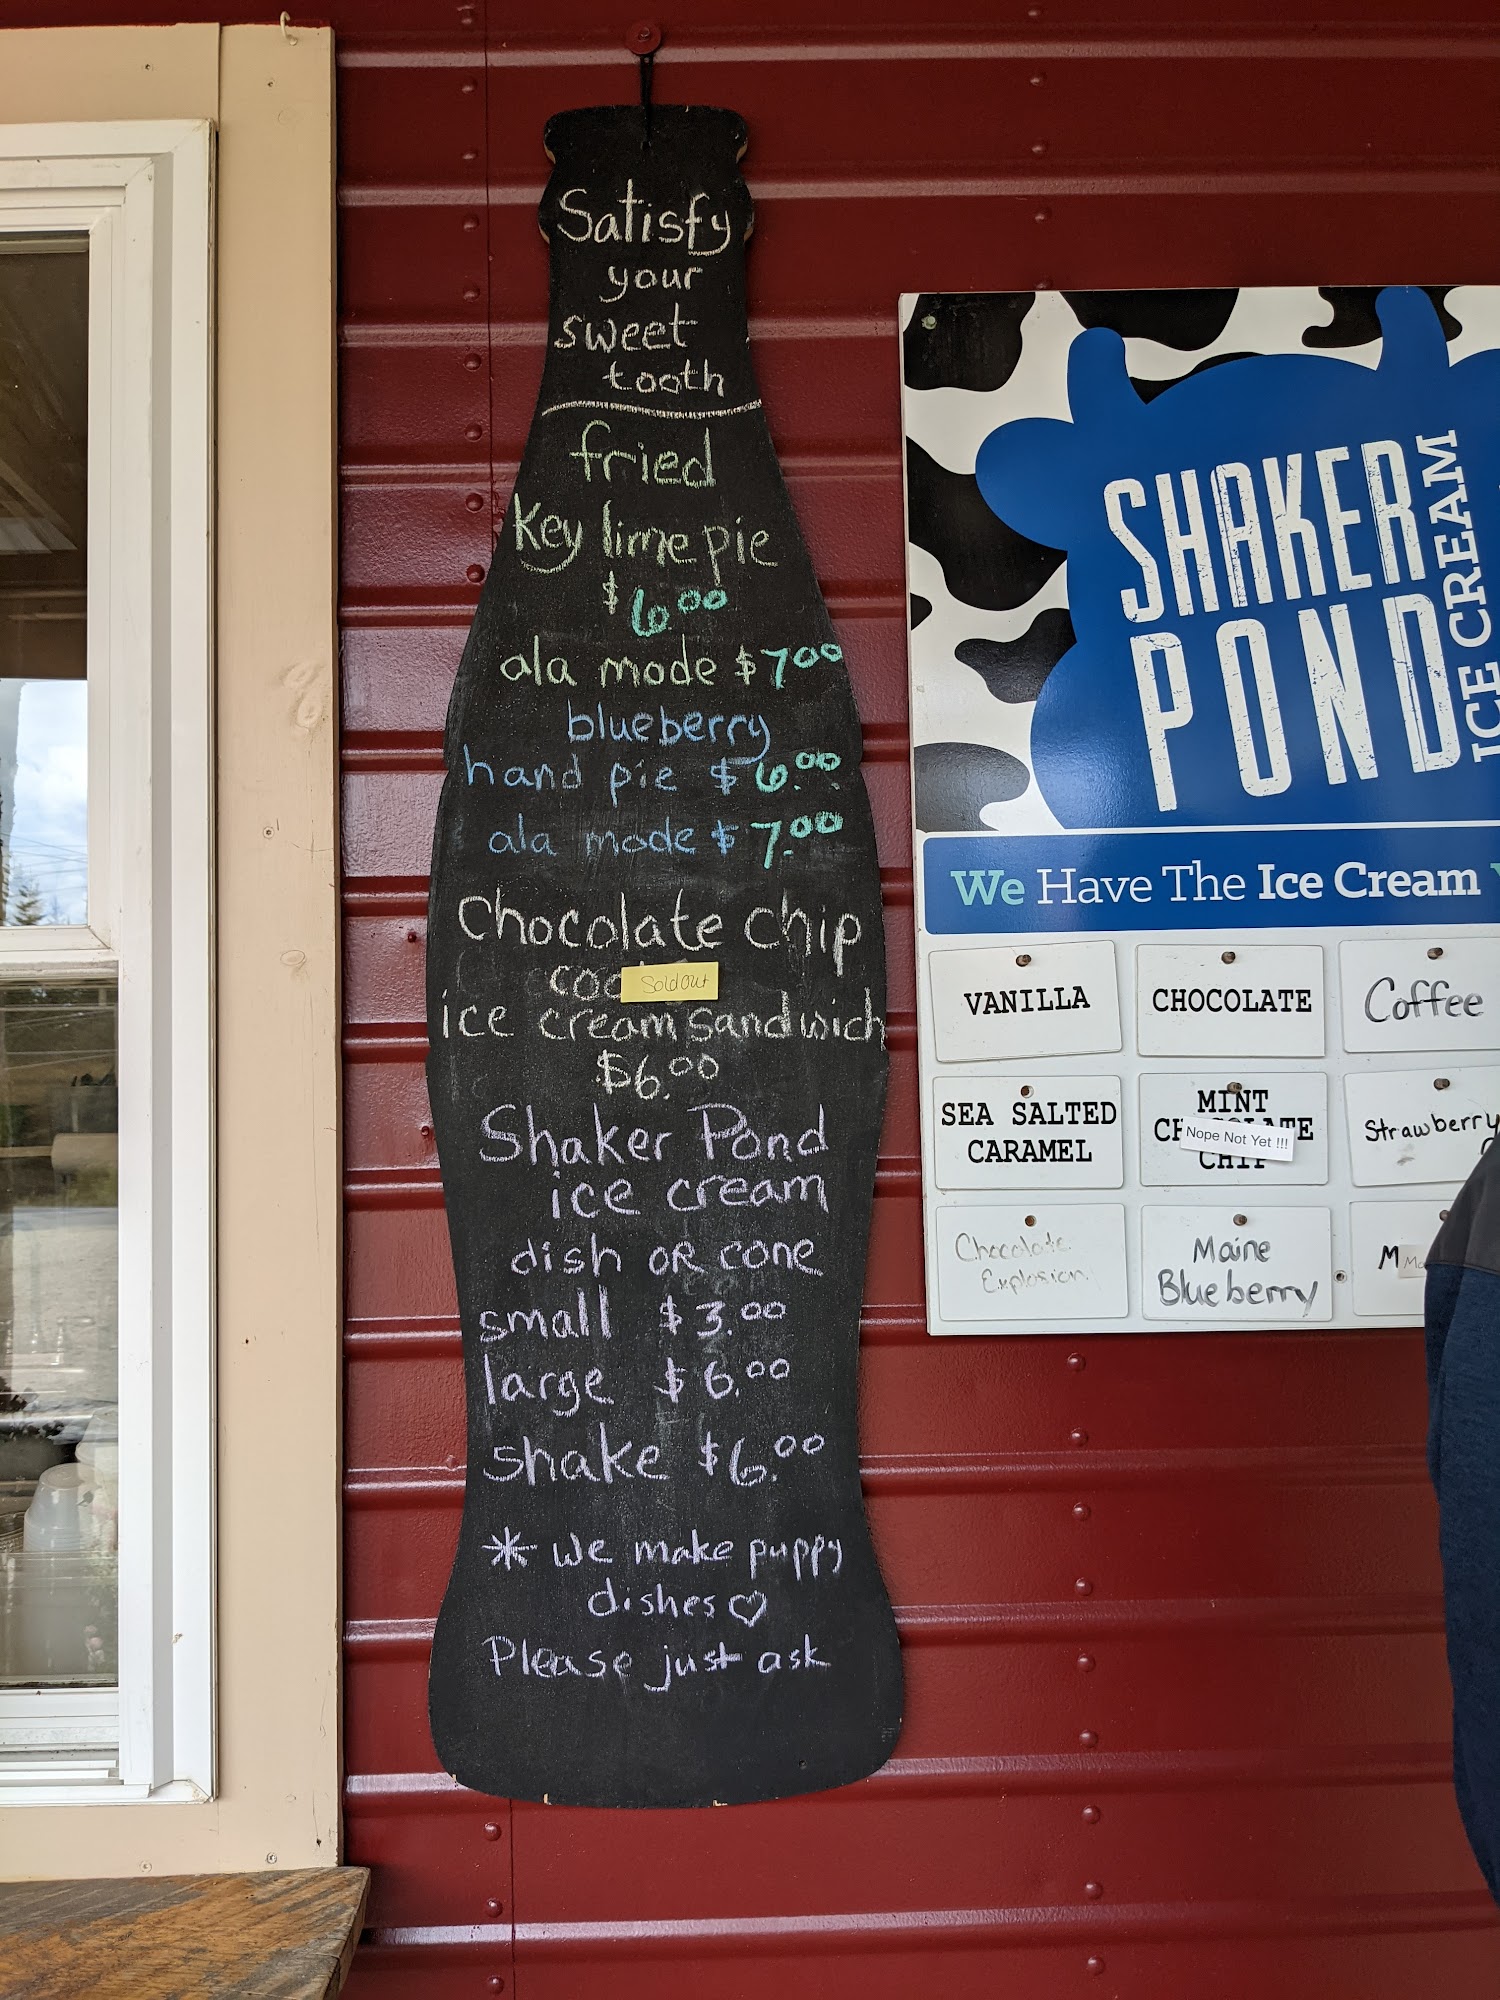 Satisfy
your
sweet
tooth
fried
Key lime pie
$6.00
ala mode $7.00
blueberry
hand pie $6.00
ala mode $7.00
Chocolate chip
Sold out
ice cream sandwich
$6.00
Shaker Pond
ice cream
dish OR cone
small $3.00
large $6.00
shake $6.00
* we make puppy
dishes ♡
Please just ask
SHAKER
POND
ICE CREAM
We Have The Ice Cream
VANILLA
CHOCOLATE
Coffee
SEA SALTED
CARAMEL
MINT
Nope Not Yet !!!
CHIP
Strawberry
Chocolate
Explosion
Maine
Blueberry